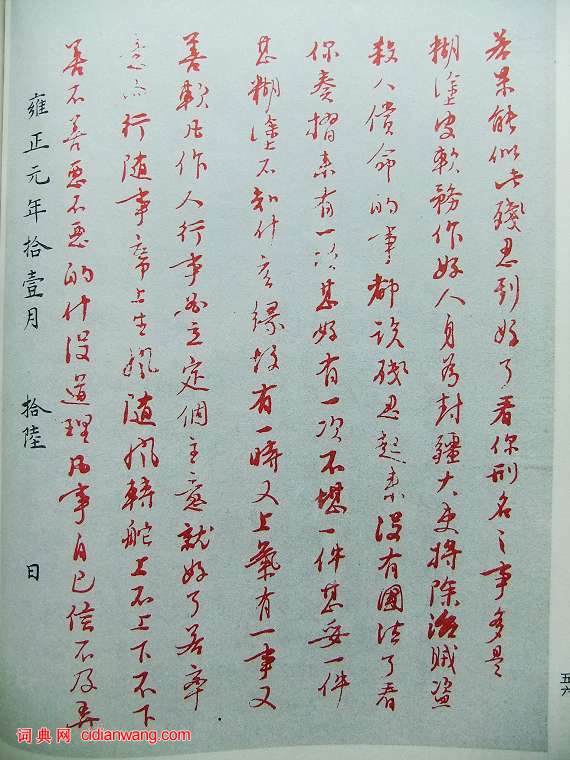 若果能似此殘忍到好了看你刑名之事多是
糊塗皮軟務作好人身為封疆大吏將除治賊盜
殺人償命的事都談殘忍起來沒有國法了看
你奏摺來有一次甚好有一次不堪一件甚妥一件
甚糊塗不知什広緣故有一時又上氣有一事又
善軟凡作人行事必立定個主意就好了若率
意而行随事上生風随風轉舵上不上下不下
善不善惡不惡的什沒道理凡事自己信不及弄
雍正元年拾壹月 拾陸 日
五六
词典网 cidianwang.com